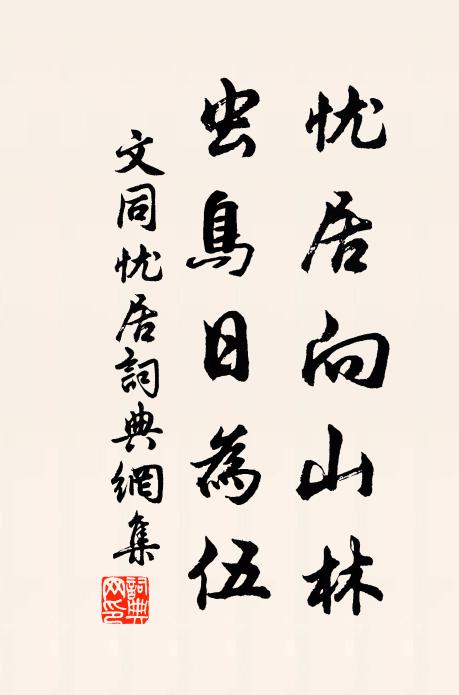 忧居向山林
虫鳥日為伍
文同忧居詞典網集
詞典网印